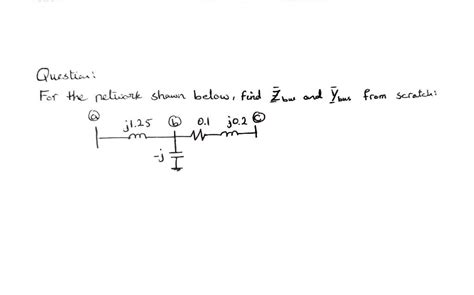 Question:
For the network shown below, find Z̄bus and Ȳbus from scratch:
a
j1.25 b 0.1 j0.2 c
-j